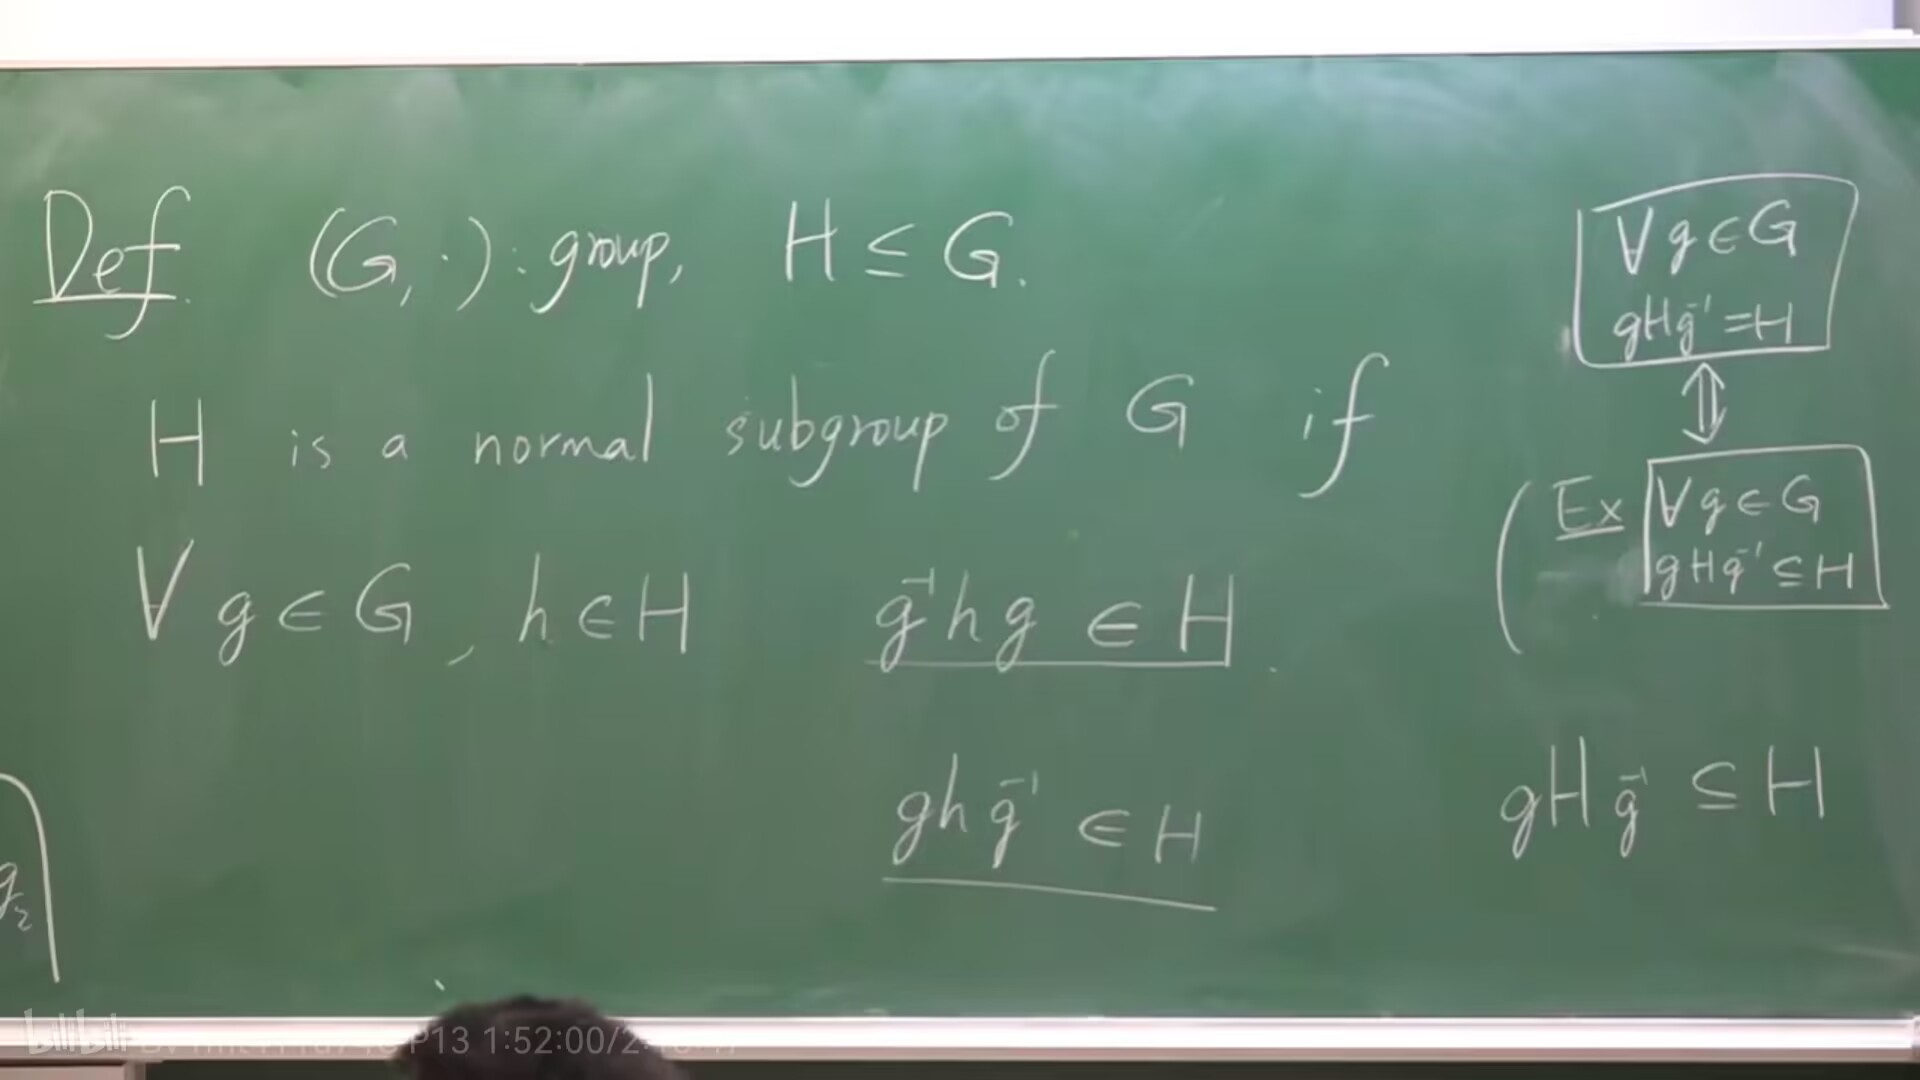 Def. (G, ·) : group, H ≤ G.
H is a normal subgroup of G if
∀ g ∈ G, h ∈ H g⁻¹hg ∈ H.
ghg⁻¹ ∈ H
∀ g ∈ G
gHg⁻¹ = H
⇕
( Ex ∀ g ∈ G
gHg⁻¹ ⊆ H
gHg⁻¹ ⊆ H
g₂
bilibili
P13 1:52:00/2: